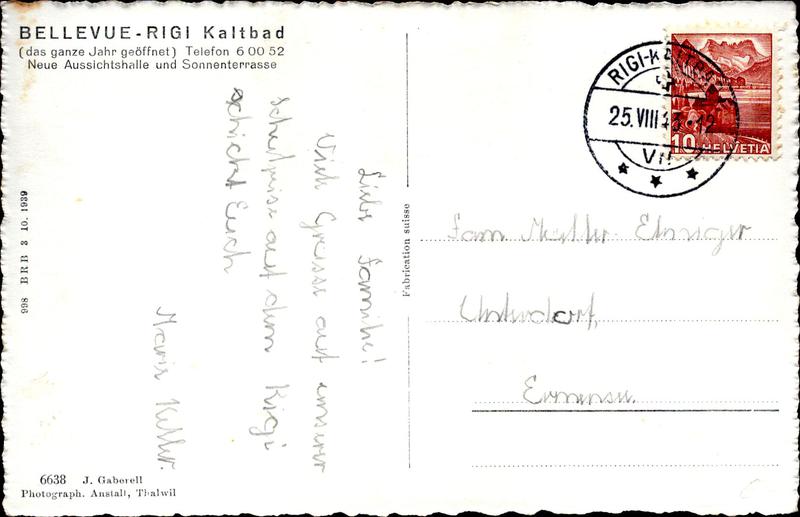 BELLEVUE-RIGI Kaltbad
(das ganze Jahr geöffnet) Telefon 6 00 52
Neue Aussichtshalle und Sonnenterrasse
Liebe Familie!
Viele Grüsse auf unserer
schulreise auf dem Rigi
schickt Euch
Maris Keller.
998 BRB 3 10. 1939
6638 J. Gaberell
Photograph. Anstalt, Thalwil
Fabrication suisse
RIGI-KALTBAD
25.VIII 43·12
VII
10 HELVETIA
Fam Keller
Unterdorf,
Ermensee.